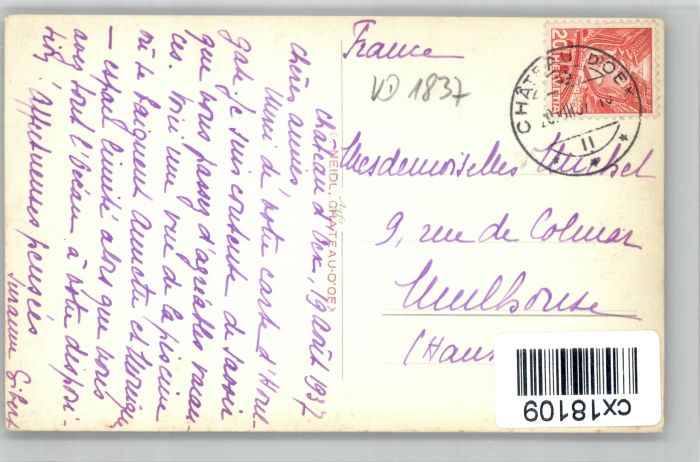 France
VD 1837
20
CHÂTEAU D'OEX
II
Mesdemoiselles
9, rue de Colmar
Mulhouse
(Hau
cx18109
HEIDL, CHÂTEAU-D'OEX
Château d'Oex, 19 août 1937.
Chères amies,
Merci de votre carte d'Hou-
gate. Je suis contente de savoir
que vous passez d'agréables vacan-
ces. Voici une vue de la piscine
où se baignent Annette et
- espace limité alors que vous
avez tout l'Océan à votre disposi-
tion! Affectueuses pensées
Suzanne